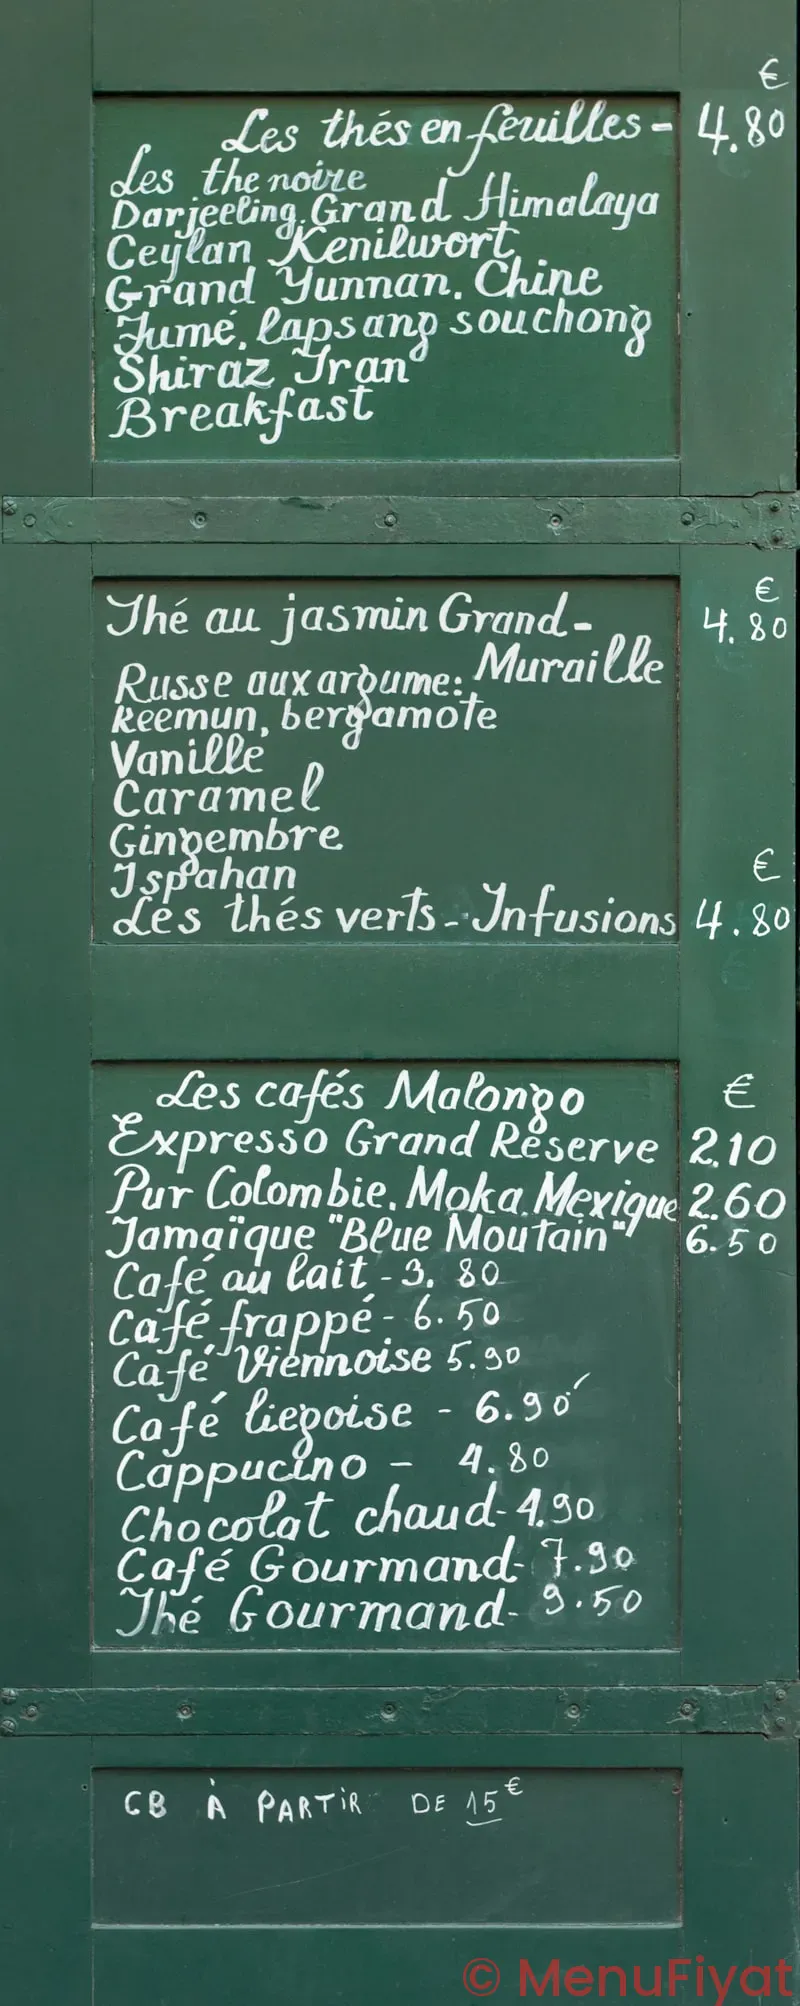 €
Les thés en feuilles - 4.80
Les the noire
Darjeeling. Grand Himalaya
Ceylan Kenilwort
Grand Yunnan. Chine
Fumé. lapsang souchong
Shiraz Iran
Breakfast
€
Thé au jasmin Grand- 4.80
Muraille
Russe aux argume:
keemun, bergamote
Vanille
Caramel
Gingembre
Ispahan
€
Les thés verts - Infusions 4.80
Les cafés Malongo €
Expresso Grand Reserve 2.10
Pur Colombie. Moka. Mexique 2.60
Jamaïque "Blue Moutain" 6.50
Café au lait - 3.80
Café frappé - 6.50
Café Viennoise 5.90
Café liegoise - 6.90
Cappucino - 4.80
Chocolat chaud - 4.90
Café Gourmand - 7.90
Thé Gourmand - 9.50
CB À PARTIR DE 15€
© MenuFiyat